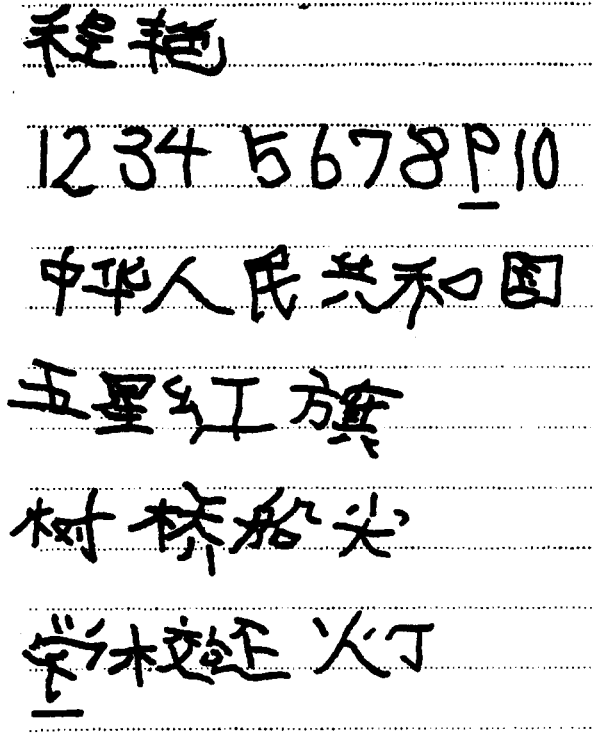 程艳
12 34 5 6 7 8 9 10
中华人民共和国
五星红旗
树 桥 船 尖
学校 灯